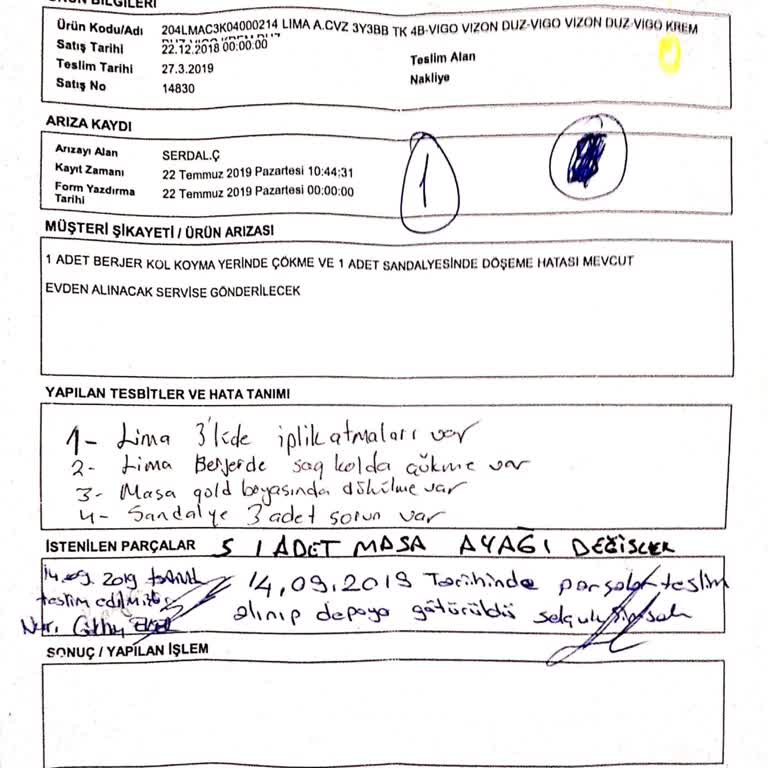 ÜRÜN BİLGİLERİ
Ürün Kodu/Adı 204LMAC3K04000214 LIMA A.CVZ 3Y3BB TK 4B-VIGO VIZON DUZ-VIGO VIZON DUZ-VIGO KREM
DUZ-VIGO KREM DUZ
Satış Tarihi 22.12.2018 00:00:00
Teslim Alan
Teslim Tarihi 27.3.2019
Nakliye
Satış No 14830
ARIZA KAYDI
Arızayı Alan SERDAL.Ç
Kayıt Zamanı 22 Temmuz 2019 Pazartesi 10:44:31
Form Yazdırma Tarihi 22 Temmuz 2019 Pazartesi 00:00:00
1
MÜŞTERİ ŞİKAYETİ / ÜRÜN ARIZASI
1 ADET BERJER KOL KOYMA YERİNDE ÇÖKME VE 1 ADET SANDALYESİNDE DÖŞEME HATASI MEVCUT
EVDEN ALINACAK SERVİSE GÖNDERİLECEK
YAPILAN TESBİTLER VE HATA TANIMI
1- Lima 3'lüde iplik atmaları var
2- Lima Berjerde sağ kolda çökme var
3- Masa gold boyasında dökülme var
4- Sandalye 3 adet sorun var
İSTENİLEN PARÇALAR 5 1 ADET MASA AYAĞI DEĞİŞCEK
14.09.2019 teslim edilmiştir
14.09.2019 Tarihinde parçalar teslim
alınıp depoya götürüldü selçuk
SONUÇ / YAPILAN İŞLEM